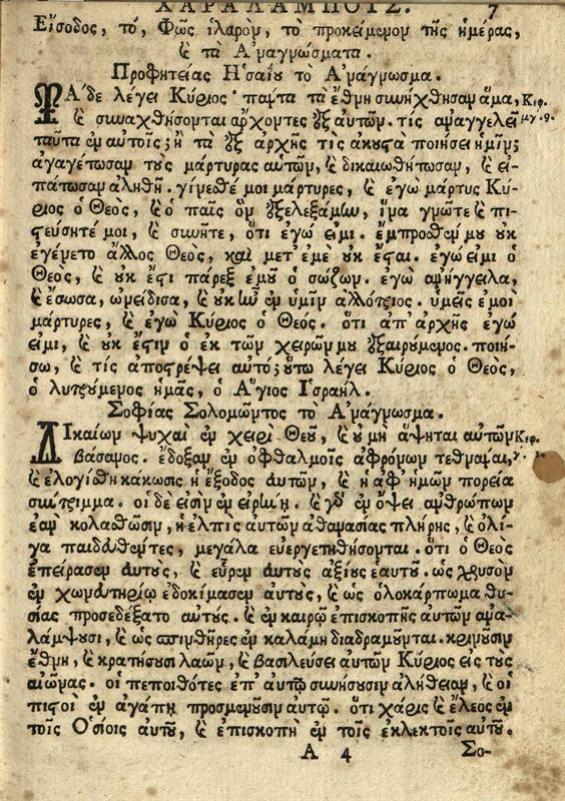 ΧΑΡΑΛΑΜΠΟΥΣ. 7
Εἴσοδος, τό, Φῶς ἱλαρὸν, τὸ προκείμενον τῆς ἡμέρας,
ϗ τὰ Ἀναγνώσματα.
Προφητείας Ἡσαΐου τὸ Ἀνάγνωσμα.
ΤΑ´δε λέγει Κύριος· πάντα τὰ ἔθνη συνήχθησαν ἅμα, Κεφ.
ϗ συναχθήσονται ἄρχοντες ἐξ αὐτῶν. τίς ἀναγγελεῖ μγ. 9.
ταῦτα ἐν αὐτοῖς; ἢ τὰ ἐξ ἀρχῆς τίς ἀκουστὰ ποιήσει ἡμῖν;
ἀγαγέτωσαν τοὺς μάρτυρας αὐτῶν, ϗ δικαιωθήτωσαν, ϗ εἰ-
πάτωσαν ἀληθῆ. γίνεσθέ μοι μάρτυρες, ϗ ἐγὼ μάρτυς Κύ-
ριος ὁ Θεὸς, ϗ ὁ παῖς ὃν ἐξελεξάμην, ἵνα γνῶτε ϗ πι-
στεύσητέ μοι, ϗ συνῆτε, ὅτι ἐγώ εἰμι. ἔμπροσθέν μου οὐκ
ἐγένετο ἄλλος Θεὸς, καὶ μετ' ἐμὲ οὐκ ἔσται. ἐγώ εἰμι ὁ
Θεὸς, ϗ οὐκ ἔστι πάρεξ ἐμοῦ ὁ σώζων. ἐγὼ ἀνήγγειλα,
ϗ ἔσωσα, ὠνείδισα, ϗ οὐκ ἦν ἐν ὑμῖν ἀλλότριος. ὑμεῖς ἐμοὶ
μάρτυρες, ϗ ἐγὼ Κύριος ὁ Θεός. ὅτι ἀπ' ἀρχῆς ἐγώ
εἰμι, ϗ οὐκ ἔστιν ὁ ἐκ τῶν χειρῶν μου ἐξαιρύμενος. ποιή-
σω, ϗ τίς ἀποστρέψει αὐτό; οὕτω λέγει Κύριος ὁ Θεὸς,
ὁ λυτρούμενος ἡμᾶς, ὁ Ἅγιος Ἰσραήλ.
Σοφίας Σολομῶντος τὸ Ἀνάγνωσμα.
ΔΙκαίων ψυχαὶ ἐν χειρὶ Θεοῦ, ϗ οὐ μὴ ἅψηται αὐτῶν Κεφ.
βάσανος. ἔδοξαν ἐν ὀφθαλμοῖς ἀφρόνων τεθνάναι, γ. 1.
ϗ ἐλογίσθη κάκωσις ἡ ἔξοδος αὐτῶν, ϗ ἡ ἀφ' ἡμῶν πορεία
σύντριμμα. οἱ δέ εἰσὶν ἐν εἰρήνῃ. ϗ γὰρ ἐν ὄψει ἀνθρώπων
ἐὰν κολασθῶσιν, ἡ ἐλπὶς αὐτῶν ἀθανασίας πλήρης, ϗ ὀλί-
γα παιδευθέντες, μεγάλα εὐεργετηθήσονται. ὅτι ὁ Θεὸς
ἐπείρασεν αὐτοὺς, ϗ εὗρεν αὐτοὺς ἀξίους ἑαυτοῦ. ὡς χρυσὸν
ἐν χωνευτηρίῳ ἐδοκίμασεν αὐτοὺς, ϗ ὡς ὁλοκάρπωμα θυ-
σίας προσεδέξατο αὐτούς. ϗ ἐν καιρῷ ἐπισκοπῆς αὐτῶν ἀνα-
λάμψουσι, ϗ ὡς σπινθῆρες ἐν καλάμῃ διαδραμοῦνται. κρινοῦσιν
ἔθνη, ϗ κρατήσουσι λαῶν, ϗ βασιλεύσει αὐτῶν Κύριος εἰς τοὺς
αἰῶνας. οἱ πεποιθότες ἐπ' αὐτῷ συνήσουσιν ἀλήθειαν, ϗ οἱ
πιστοὶ ἐν ἀγάπῃ προσμενοῦσιν αὐτῷ. ὅτι χάρις ϗ ἔλεος ἐν
τοῖς Ὁσίοις αὐτοῦ, ϗ ἐπισκοπὴ ἐν τοῖς ἐκλεκτοῖς αὐτοῦ.
Α 4 Σο-